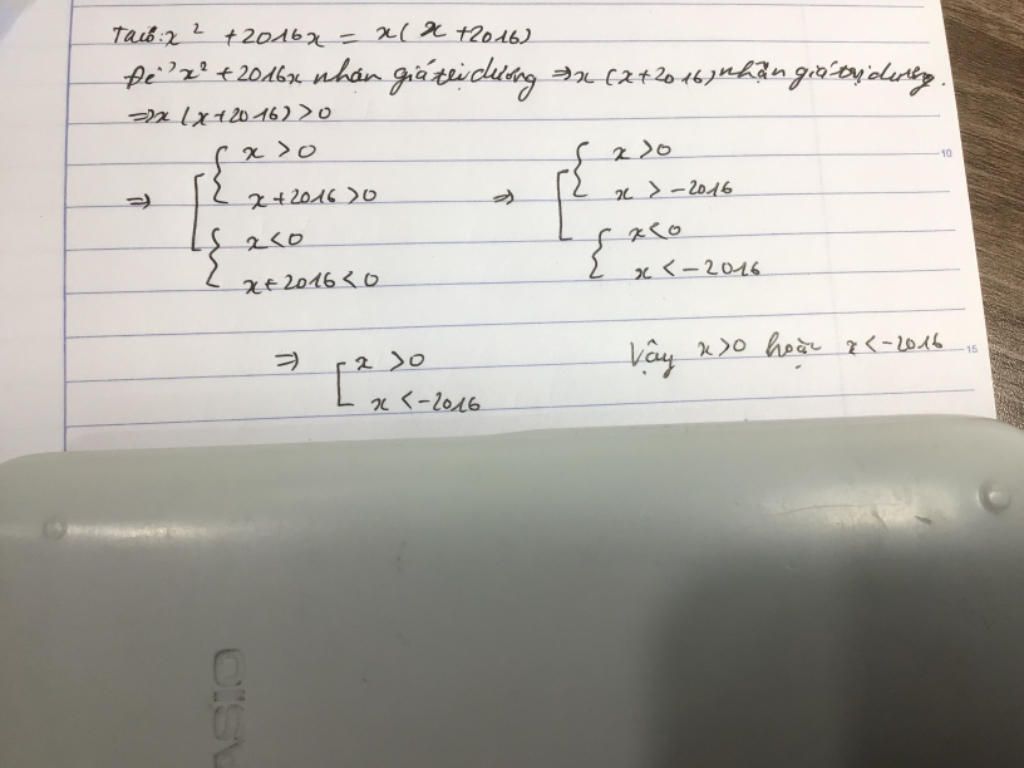 Ta có: x² + 2016x = x(x + 2016)
Để x² + 2016x nhận giá trị dương ⇒ x(x+2016) nhận giá trị dương.
⇒ x(x+2016) > 0
⇒ [ { x > 0 ⇒ [ { x > 0
x + 2016 > 0 x > -2016
{ x < 0 { x < 0
x + 2016 < 0 x < -2016
⇒ [ x > 0 Vậy x > 0 hoặc x < -2016
x < -2016
10
15